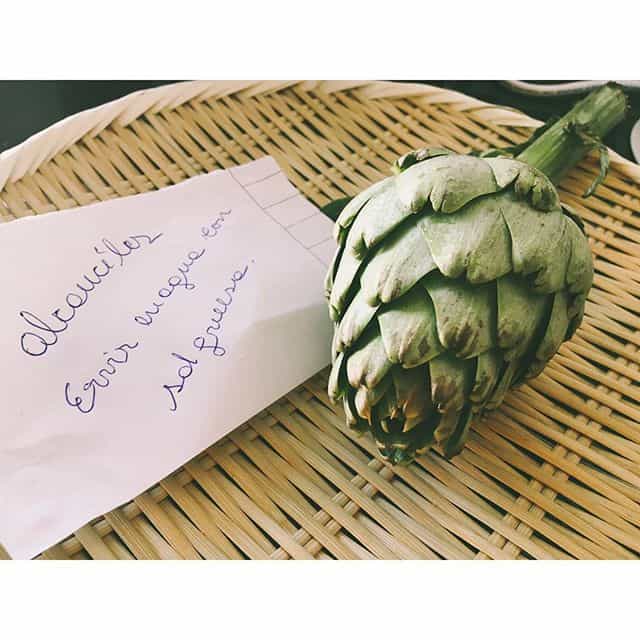 Alcauciles
Ervir enagua con
sal gruesa.